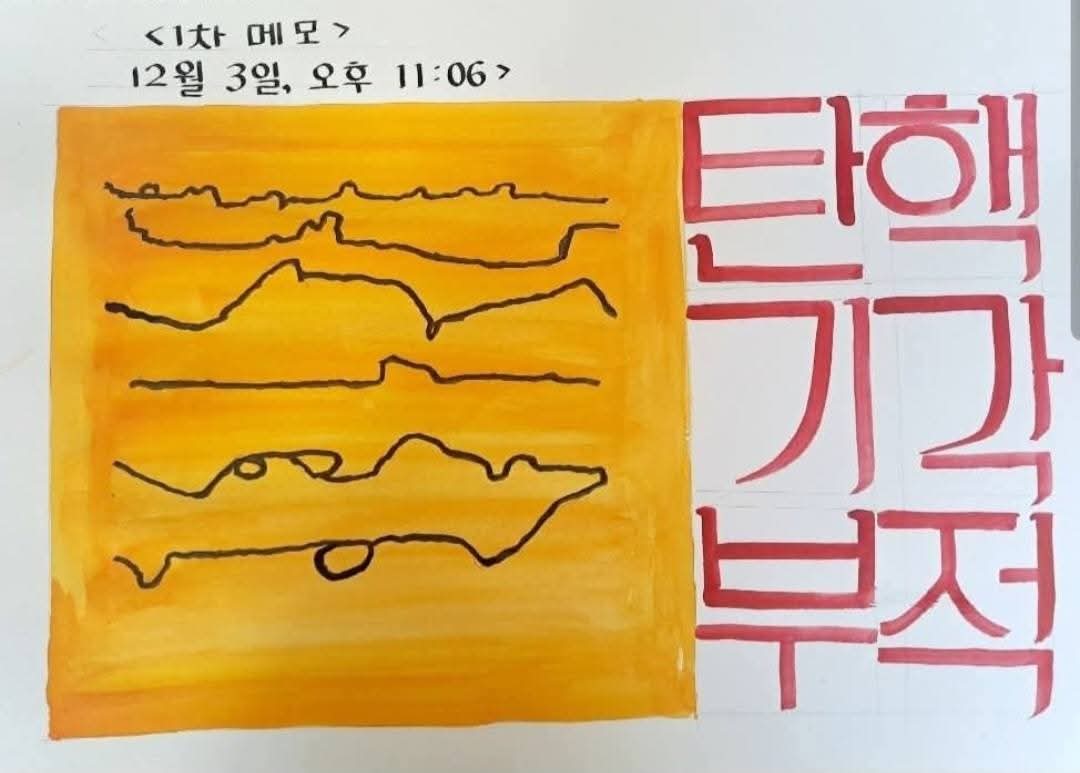 <1차 메모>
12월 3일, 오후 11:06>
탄핵
기각
부적